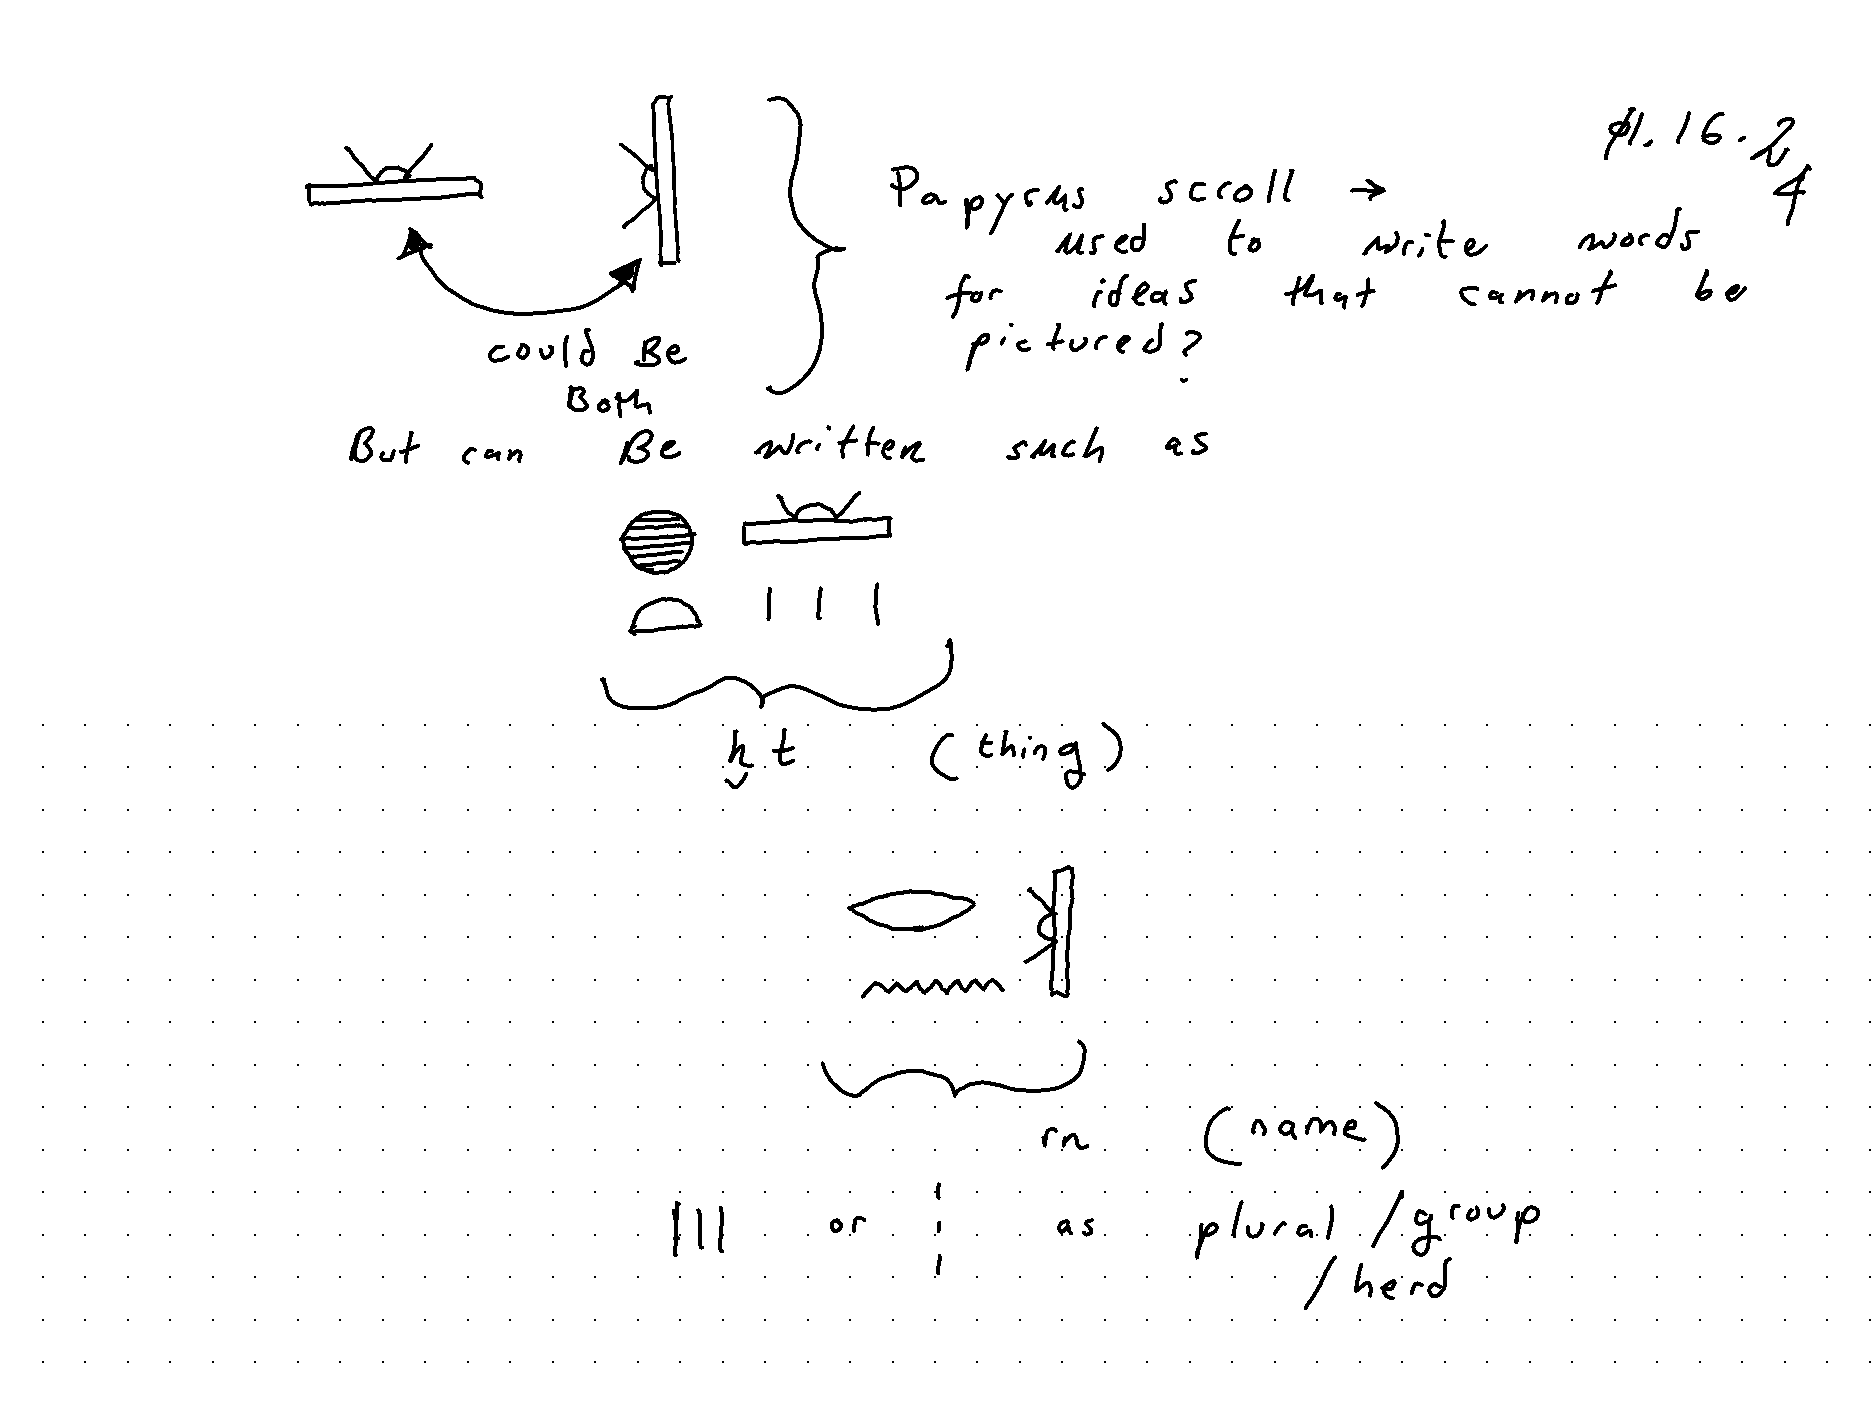 01.16.24
Papyrus scroll →
used to write words
for ideas that cannot be
pictured?
could Be
Both
But can Be written such as
𓐍 𓏛
𓏏 𓏥
ḫt (thing)
𓂋 𓏜
𓈖
rn (name)
||| or ¦ as plural /group
/herd